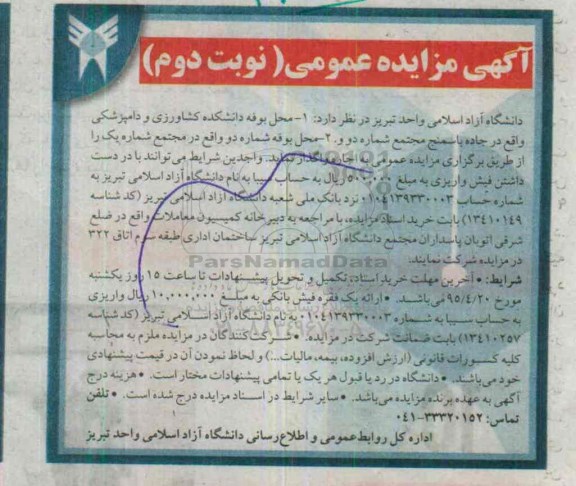 آگهی مزایده عمومی( نوبت دوم)
دانشگاه آزاد اسلامی واحد تبریز در نظر دارد: ۱-محل بوفه دانشکده کشاورزی و دامپزشکی
واقع در جاده باسمنج مجتمع شماره دو و. ۲-محل بوفه شماره دو واقع در مجتمع شماره یک را
از طریق برگزاری مزایده عمومی به اجاره واگذار نماید. واجدین شرایط می توانند با در دست
داشتن فیش واریزی به مبلغ ریال به حساب سیبا به نام دانشگاه آزاد اسلامی تبریز به
شماره حساب ۰۱۰۴۱۳۹۳۳۰۰۰۳ نزد بانک ملی شعبه دانشگاه آزاد اسلامی تبریز (کد شناسه
۱۳۴۱۰۱۴۹) بابت خرید اسناد مزایده، با مراجعه به دبیرخانه کمیسیون معاملات واقع در ضلع
شرقی اتوبان پاسداران مجتمع دانشگاه آزاد اسلامی تبریز ساختمان اداری طبقه سوم اتاق ۳۲۲
در مزایده شرکت نمایند.
ParsNamadData
شرایط: • آخرین مهلت خرید اسناد، تکمیل و تحویل پیشنهادات تا ساعت ۱۵ روز یکشنبه
مورخ ۹۵/۴/۲۰ می باشد. • ارائه یک فقره فیش بانکی به مبلغ ۱۰,۰۰۰,۰۰۰ ریال واریزی
به حساب سیبا به شماره ۰۱۰۴۱۳۹۳۳۰۰۰۳ به نام دانشگاه آزاد اسلامی تبریز (کد شناسه
۱۳۴۱۰۲۵۷) بابت ضمانت شرکت در مزایده. • شرکت کنندگان در مزایده ملزم به محاسبه
کلیه کسورات قانونی (ارزش افزوده، بیمه، مالیات...) و لحاظ نمودن آن در قیمت پیشنهادی
خود می باشند. • دانشگاه در رد یا قبول هر یک یا تمامی پیشنهادات مختار است. • هزینه درج
آگهی به عهده برنده مزایده می باشد. • سایر شرایط در اسناد مزایده درج شده است. • تلفن
تماس: ۳۳۳۲۰۱۵۲-۰۴۱
اداره کل روابط عمومی و اطلاع رسانی دانشگاه آزاد اسلامی واحد تبریز